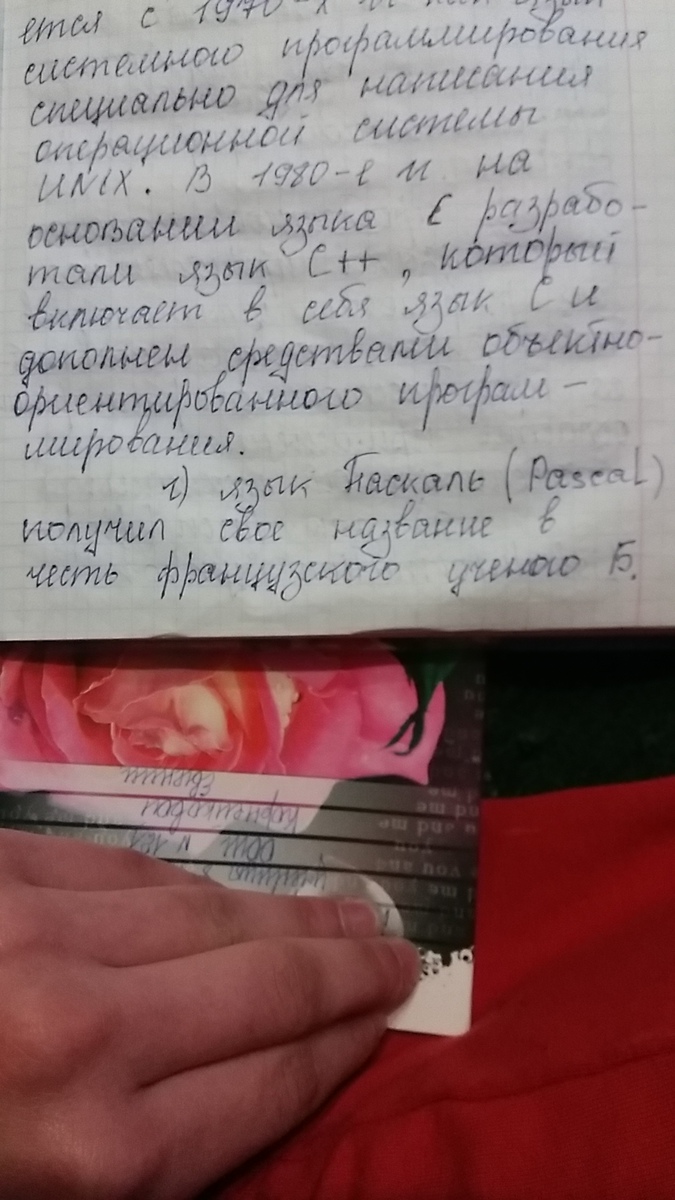 ется с 1970-х
системного программирования
специально для написания
операционной системы
UNIX. В 1980-е и на
основании языка С разрабо-
тали язык С++, который
включает в себя язык С и
дополнен средствами объектно-
ориентированного програм-
мирования.
г) язык Паскаль (Pascal)
получил свое название в
честь французского ученого Б.
you
you and